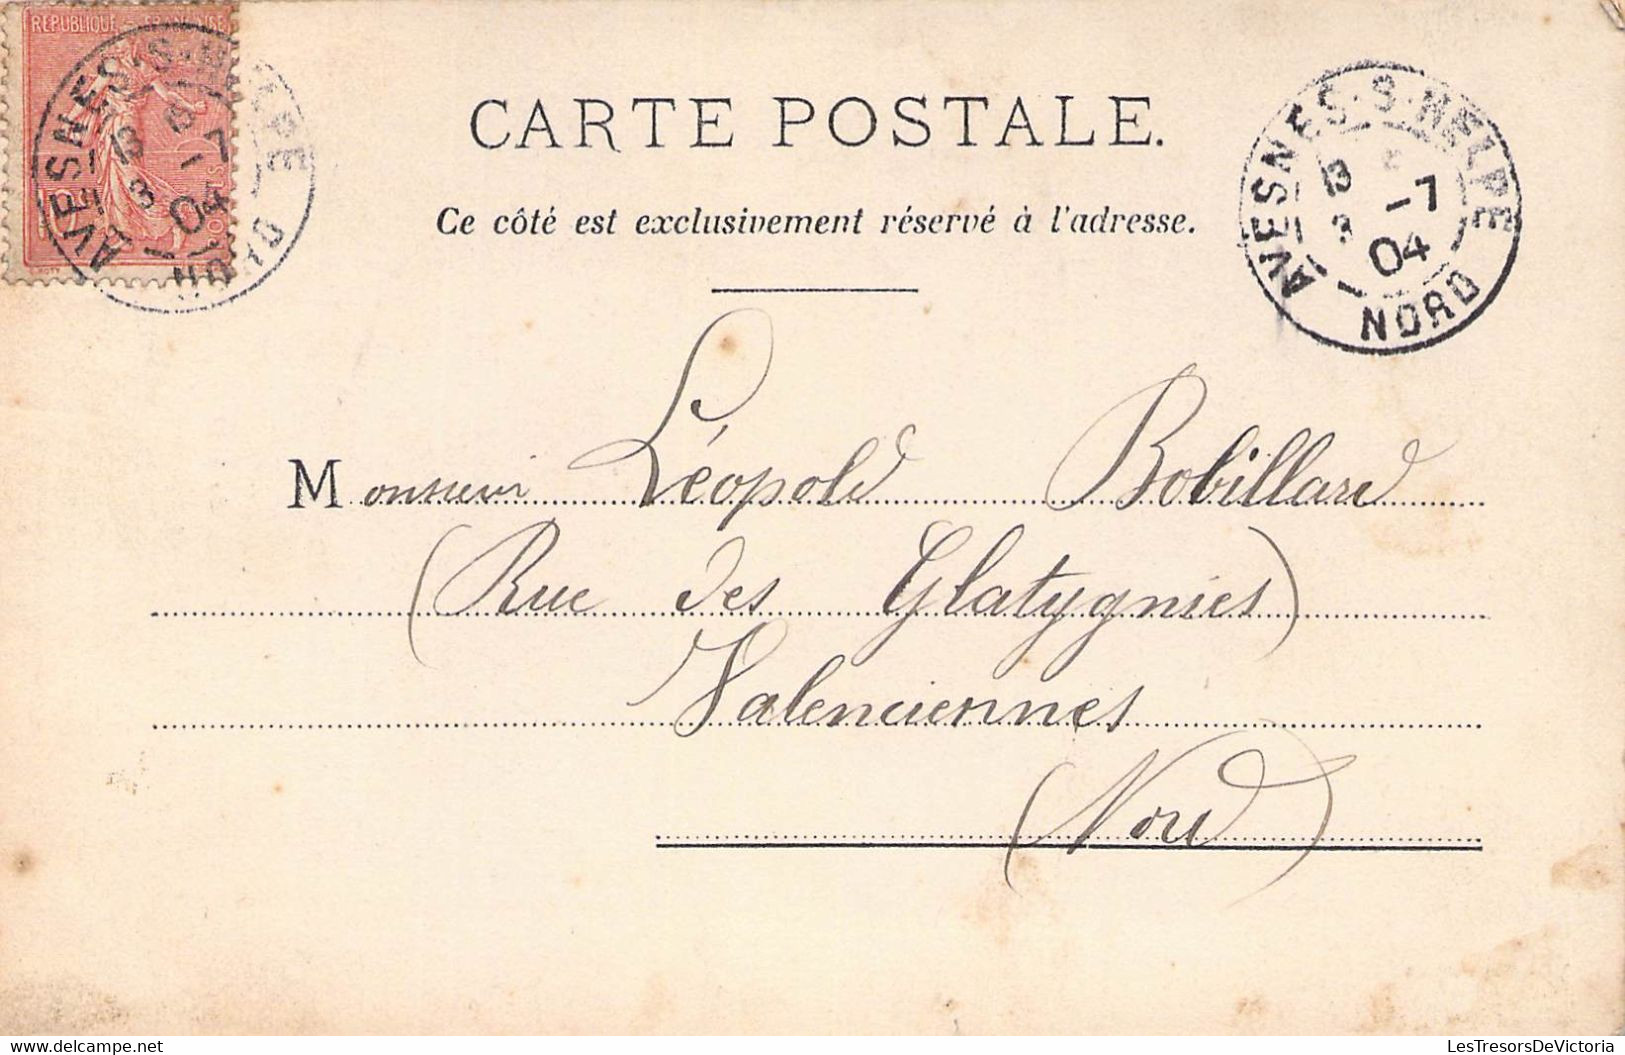 REPUBLIQUE FRANÇAISE
AVESNES·S·HELPE
13
-7
3
04
NORD
CARTE POSTALE.
Ce côté est exclusivement réservé à l'adresse.
AVESNES·S·HELPE
13
-7
3
04
NORD
Monsieur Léopold Bobillard
(Rue des Glatygnies)
Valenciennes
(Nord)
delcampe.net
LesTresorsDeVictoria